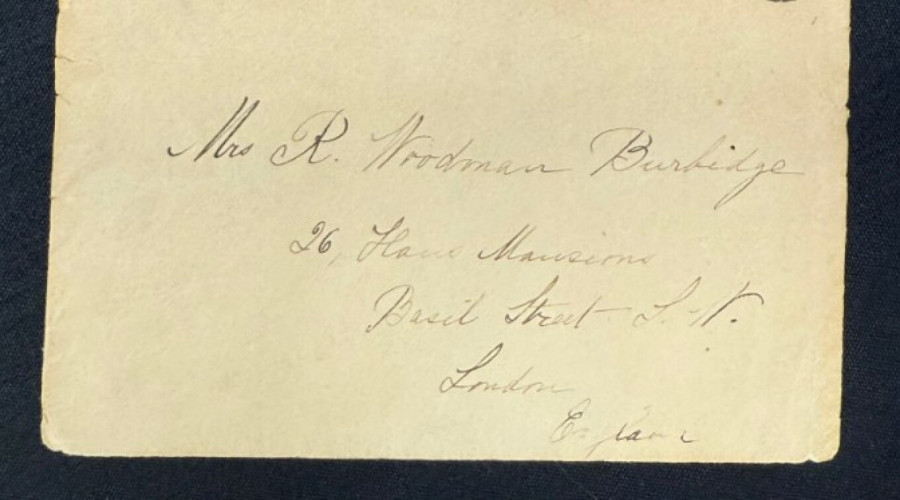 Mrs R. Woodman Burbidge
26, Hans Mansions
Basil Street S. W.
London
England